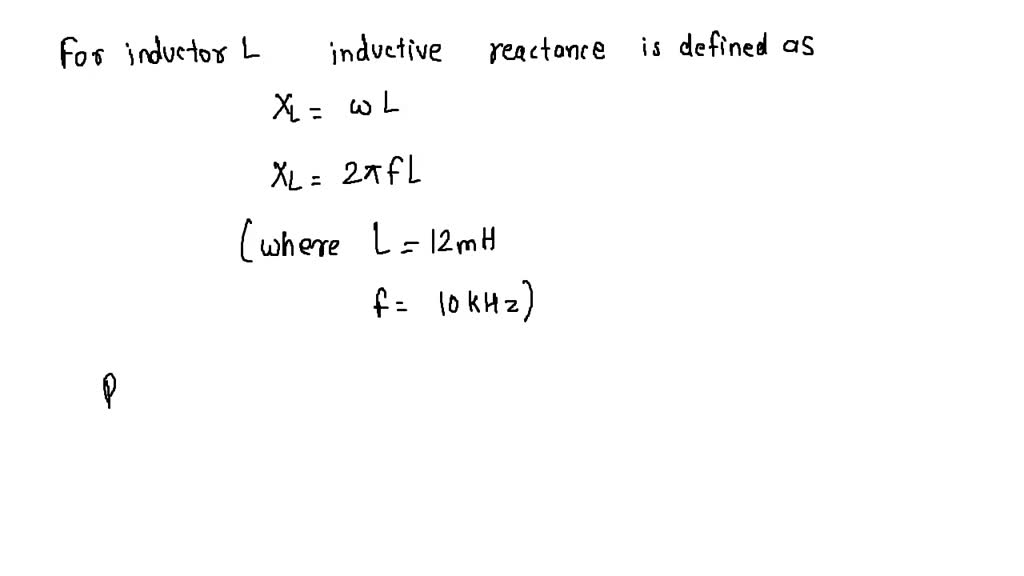 For inductor L inductive reactance is defined as
XL = ωL
XL = 2πfL
(where L = 12mH
f = 10kHz)
P